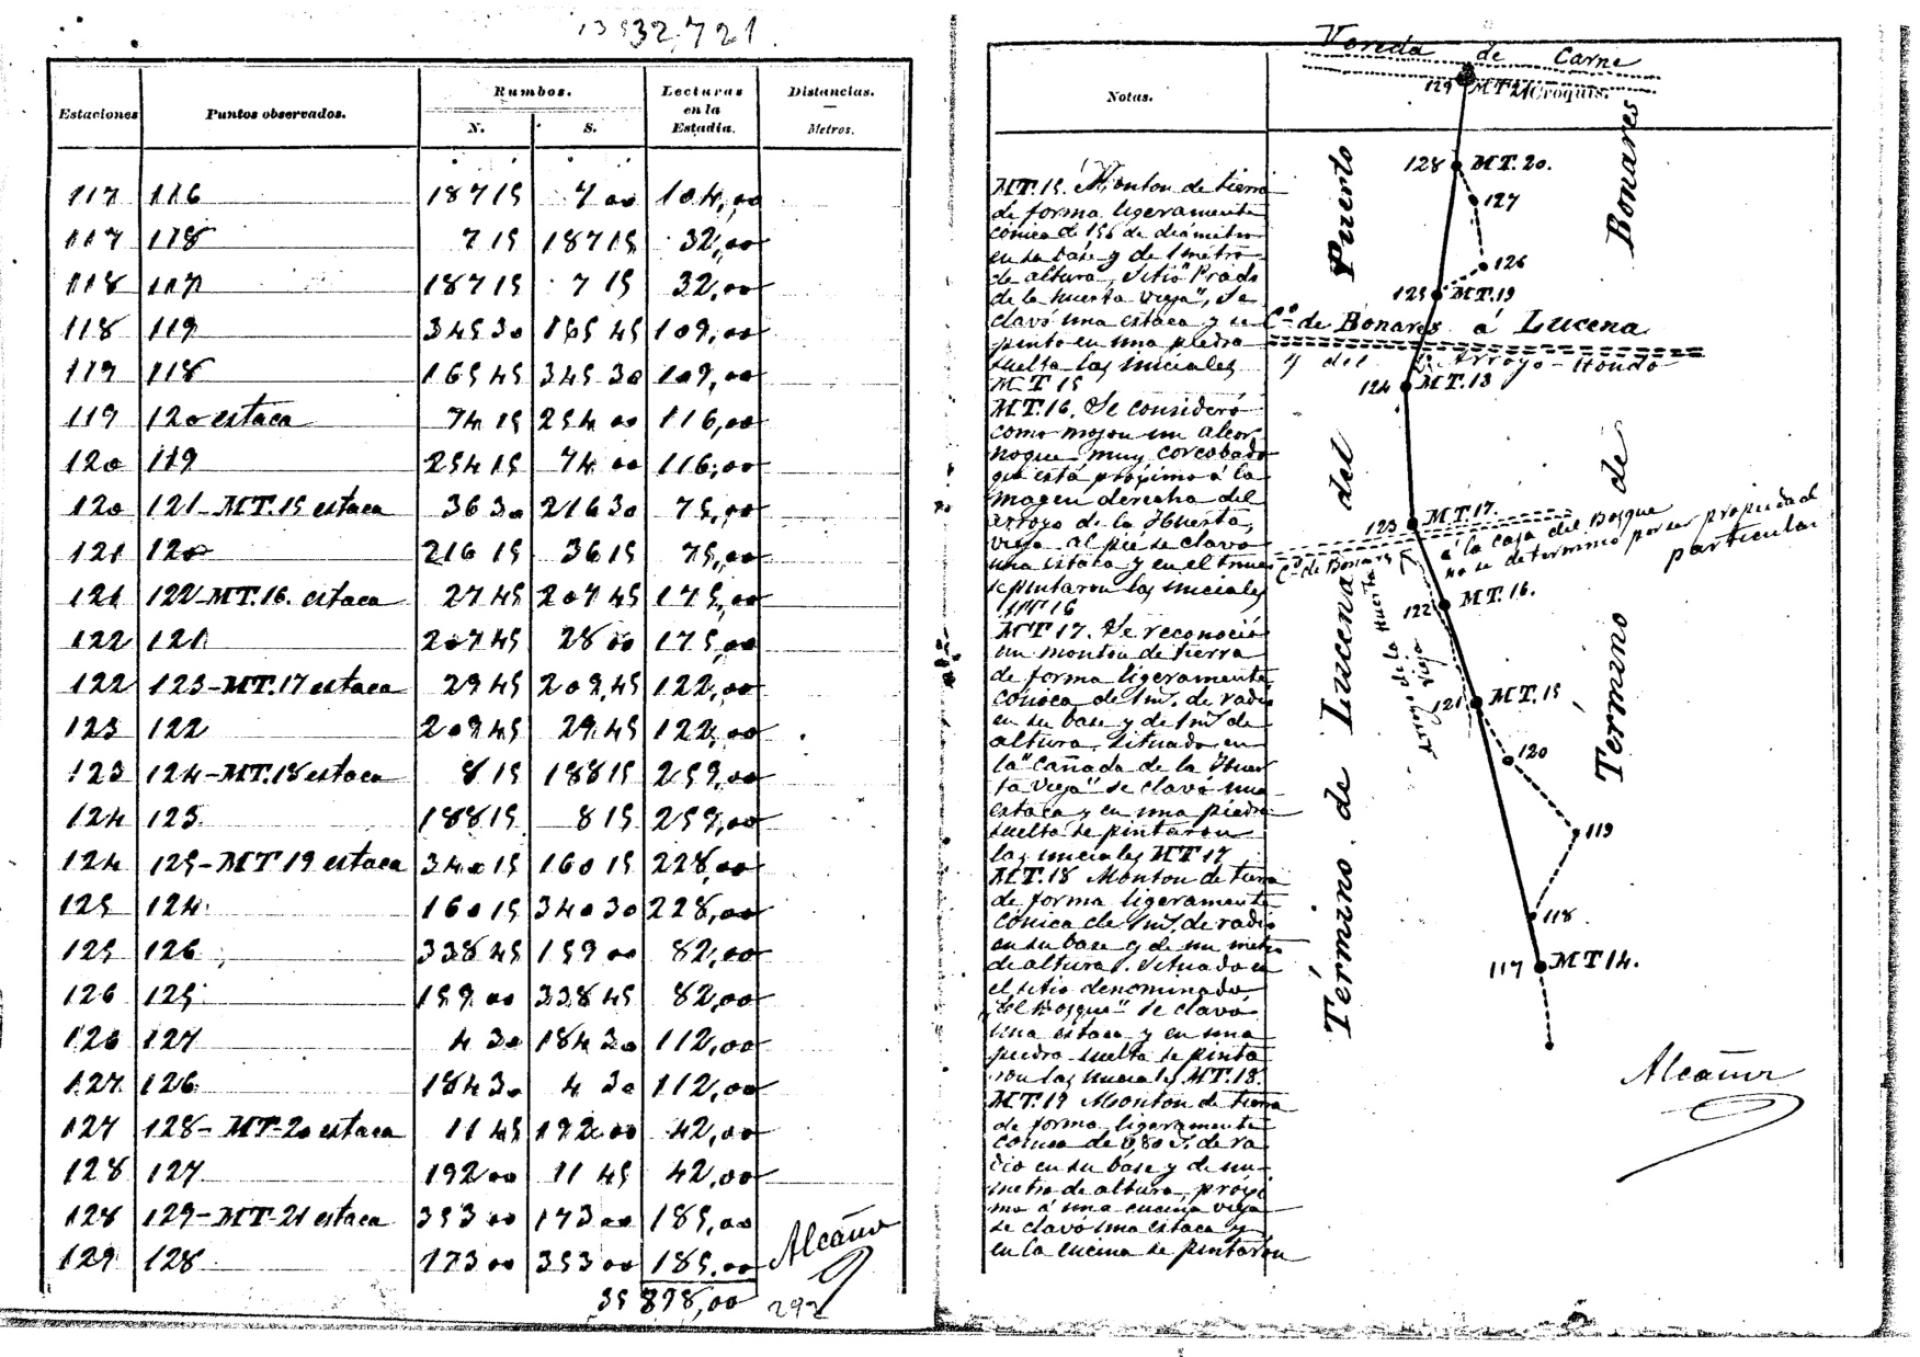 32,721
Estaciones Puntos observados. Rumbos. Lecturas en la Estadia. Distancias.
N. S. Metros.
117 116 187 15 7 00 104,00
117 118 7 15 187 15 32,00
118 117 187 15 7 15 32,00
118 119 345 30 165 45 109,00
119 118 165 45 345 30 109,00
119 120 estaca 74 15 254 00 116,00
120 119 254 15 74 00 116,00
120 121-MT.15 estaca 36 30 216 30 75,00
121 120 216 15 36 15 75,00
121 122-MT.16. estaca 27 45 207 45 175,00
122 121 207 45 28 00 175,00
122 123-MT.17 estaca 29 45 209,45 122,00
123 122 209 45 29,45 122,00
123 124-MT.18 estaca 8 15 188 15 259,00
124 123 188 15 8 15 259,00
124 125-MT 19 estaca 340 15 160 15 228,00
125 124 160 15 340 30 228,00
125 126 338 45 159 00 82,00
126 125 159 00 338 45 82,00
126 127 4 30 184 30 112,00
127 126 184 30 4 30 112,00
127 128- MT-20 estaca 11 45 192 00 42,00
128 127 192 00 11 45 42,00
128 129-MT-21 estaca 353 00 173 00 185,00
129 128 173 00 353 00 185,00
35 898,00
292
Notas.
Croquis.
MT.15. Monton de tierra
de forma ligeramente
cónica de 1 56 de diámetro
en su base y de 1 metro
de altura, Sitio "Prado
de la huerta vieja", Se
clavó una estaca y se
pinto en una piedra
suelta las iniciales
MT 15
MT.16. Se consideró
como mojon un alcor
noque muy corcobado
que está próximo á la
magen derecha del
arroyo de la Huerta
vieja al pié se clavó
una estaca y en el tronco
se pintaron las iniciales
MT 16
MT 17. Se reconoció
un monton de tierra
de forma ligeramente
cónica de 1 m. de radio
en su base y de 1 m de
altura, situado en
la "Cañada de la Huer
ta Vieja" se clavó una
estaca y en una piedra
suelta se pintaron
las iniciales MT 17
MT.18 Monton de tierra
de forma ligeramente
cónica de 1 m. de radio
en su base y de un metro
de altura. Situado en
el sitio denominado
"El Bosque" Se clavó
una estaca y en una
piedra suelta se pinta
ron las iniciales MT.18.
MT.19 Monton de tierra
de forma ligeramente
cónica de 0,80 de ra
dio en su base y de un
metro de altura, próxi
mo á una encina vieja
se clavó una estaca y
en la encina se pintaron
Vereda de Carne
129 MT 21
128 MT.20.
127
126
125 MT.19
Co de Bonares á Lucena
y del Arroyo-Hondo
124 MT.18
123 MT.17.
á la casa del Bosque
no se determino por ser propiedad
particular
Co de Bonares
122 MT.16.
Arroyo de la Huerta
Vieja
121 MT.15
120
119
118
117 MT 14.
Término de Lucena del Puerto
Término de Bonares